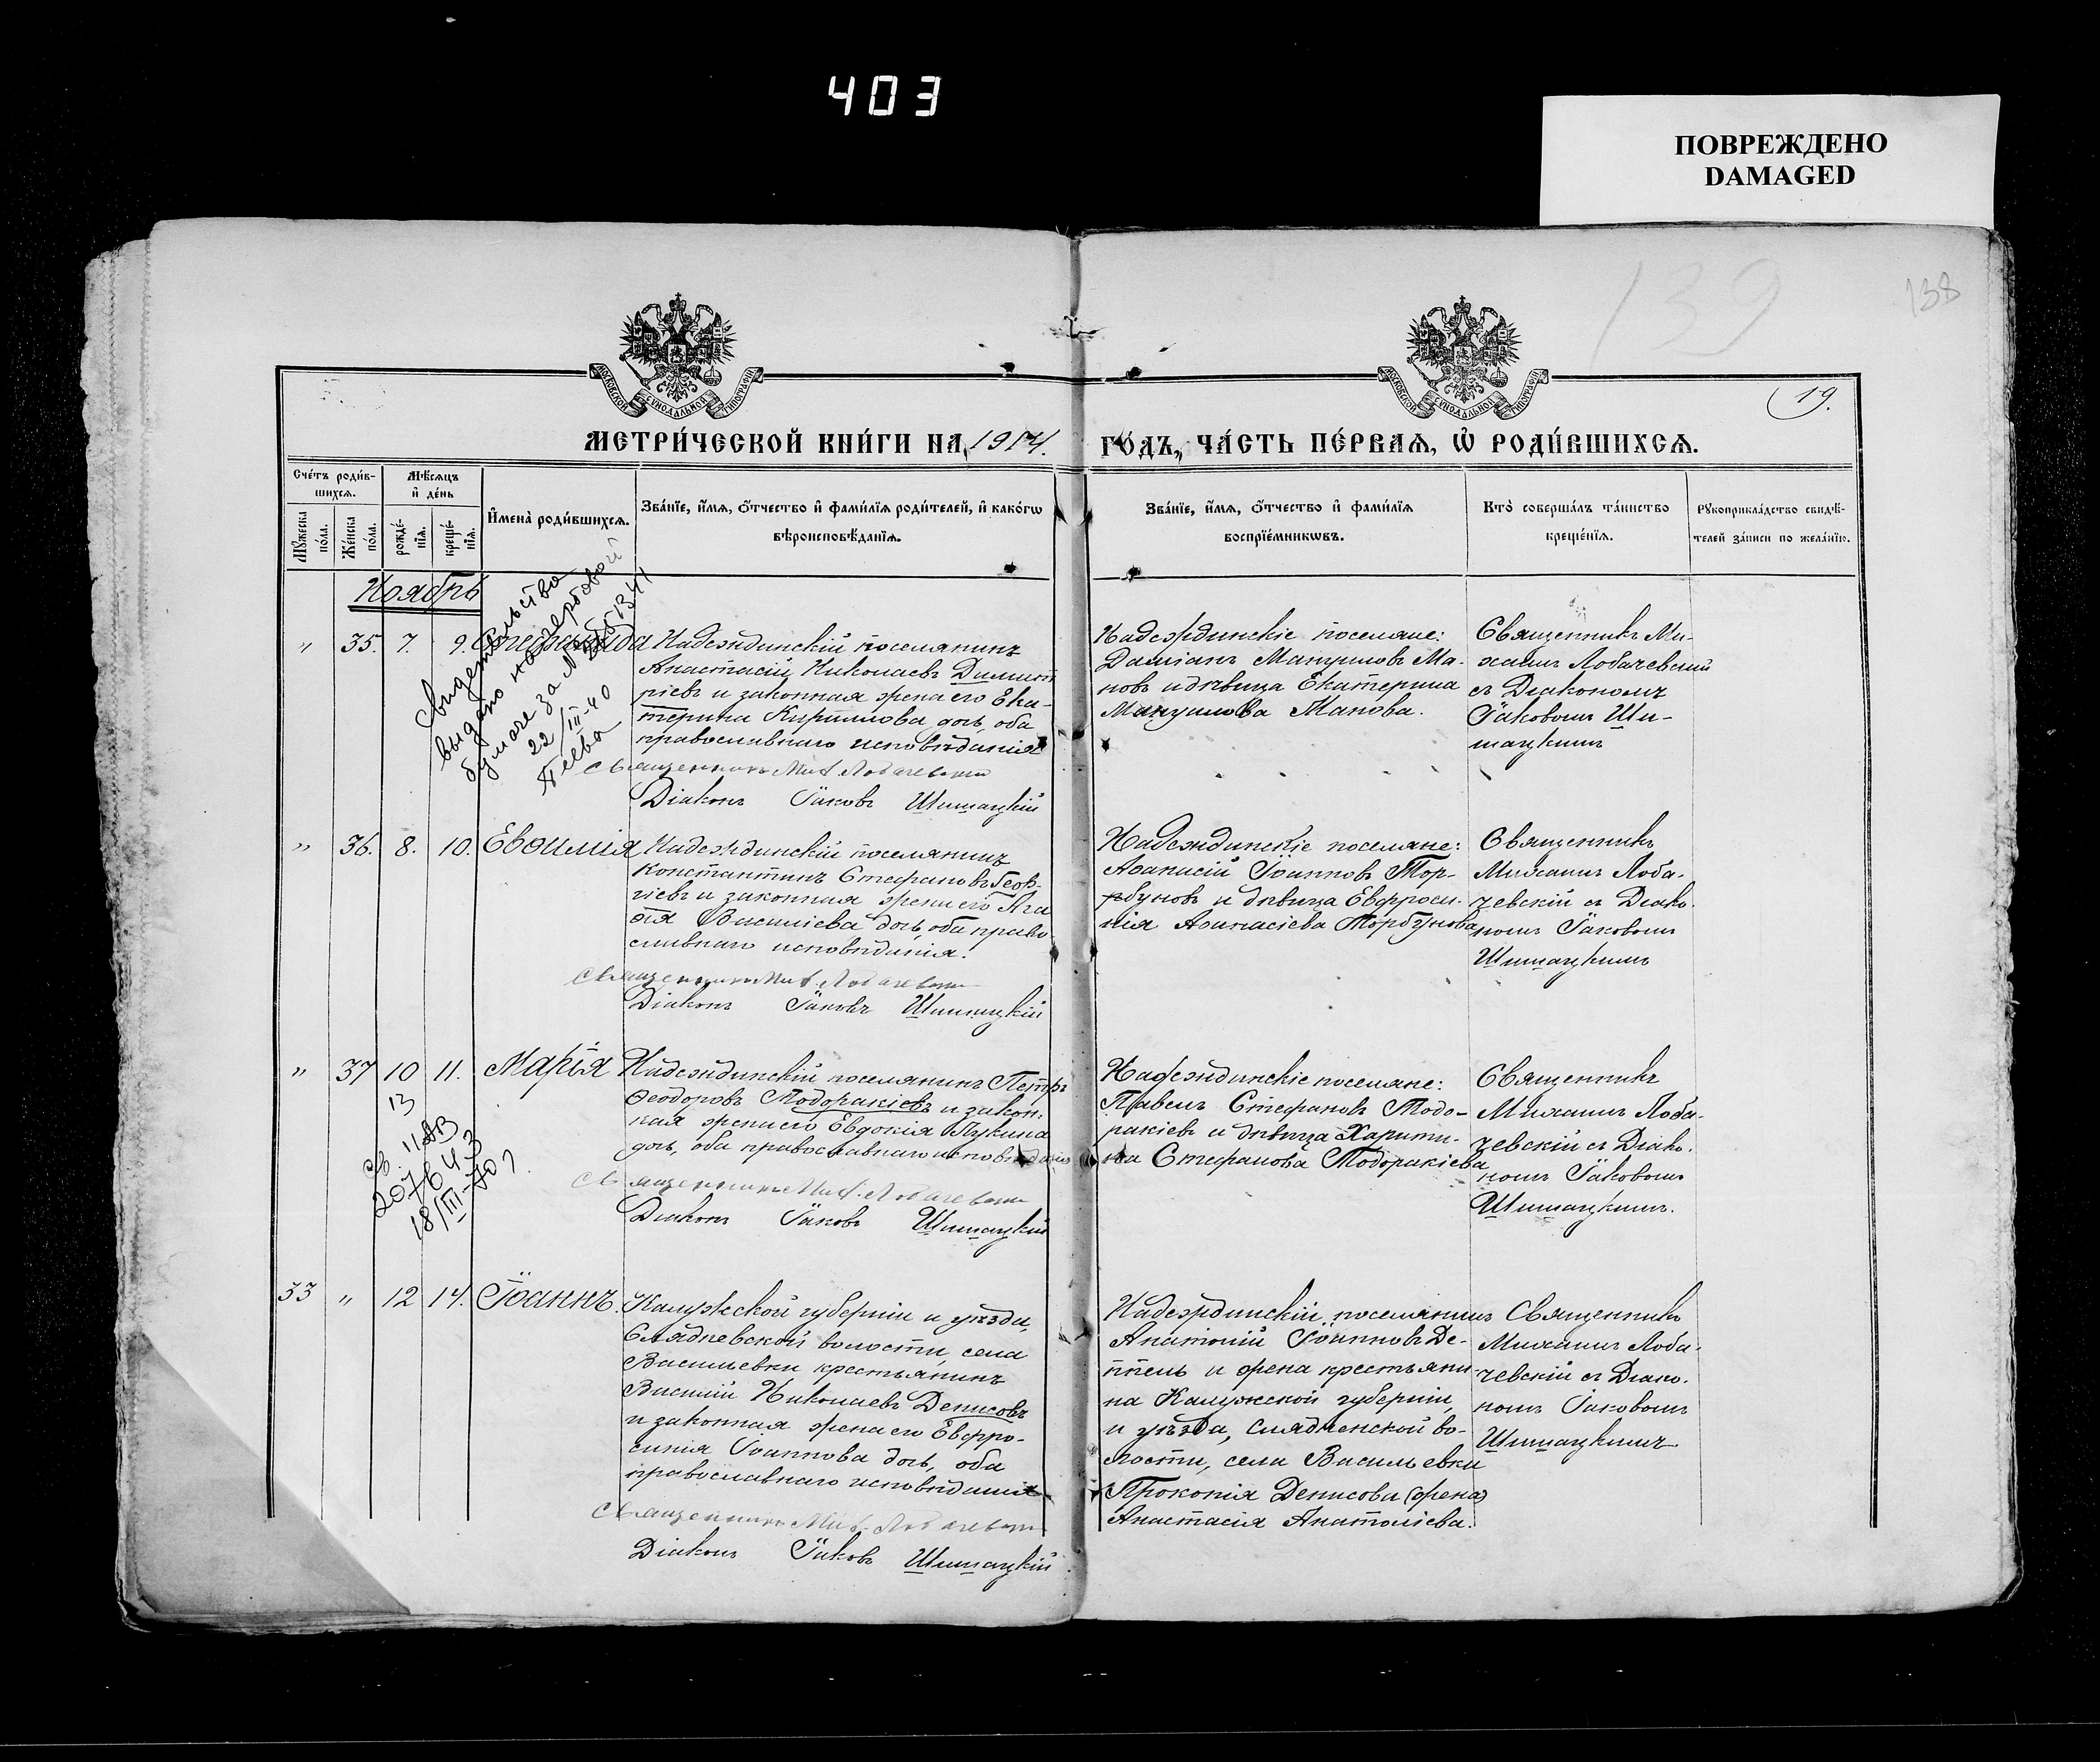 403
ПОВРЕЖДЕНО
DAMAGED
139
138
19.
МОСКОВСКОЙ СѴНОДАЛЬНОЙ ТИПОГРАФІИ
МОСКОВСКОЙ СѴНОДАЛЬНОЙ ТИПОГРАФІИ
МЕТРИ́ЧЕСКОЙ КНИ́ГИ НА 1914.
ГО́ДЪ, ЧА́СТЬ ПЕ́РВАѦ, Ѡ҆ РОДИ́ВШИХСѦ.
Сче́тъ роди́в-
шихсѧ.
Мѣ́сѧцъ
и҆ де́нь
Мꙋ́жеска
по́ла.
Же́нска
по́ла.
рожде́-
нїѧ.
креще́-
нїѧ.
И҆мена̀ роди́вшихсѧ.
Зва́нїе, и҆́мѧ, ѻ҆́тчество и҆ фами́лїѧ роди́телей, и҆ како́гѡ
вѣроисповѣ́данїѧ.
Зва́нїе, и҆́мѧ, ѻ҆́тчество и҆ фами́лїѧ
воспрїе́мникѡвъ.
Кто̀ соверша́лъ та́инство
креще́нїѧ.
Рꙋкоприкла́дство свидѣ́-
телей за́писи по жела́нїю.
Ноябрь
" 35. 7. 9. Стефанида
Надеждинскій поселянинъ
Анастасій Николаевъ Димит
ріевъ и законная жена его Ека-
терина Кириллова дочь, оба
православнаго исповѣданія
Священникъ Мих. Лобачевскій
Діаконъ Іаковъ Шишацкій
Свидетельство
выдано на гербовой
бумаге за №
22/III-40
Надеждинскіе поселяне:
Даміанъ Мануиловъ Ма-
новъ и дѣвица Екатерина
Мануилова Манова.
Священникъ Ми-
хаилъ Лобачевскій
съ Діакономъ
Іаковомъ Ши-
шацкимъ
" 36. 8. 10. Евѳимія
Надеждинскій поселянинъ
Константинъ Стефановъ Геор-
гіевъ и законная жена его Ага
ѳія Василіева дочь, оба право
славнаго исповѣданія.
Священникъ Мих. Лобачевскій
Діаконъ Іаковъ Шишацкій
Надеждинскіе поселяне:
Аѳанасій Іоанновъ Тор-
буновъ и дѣвица Евфроси-
нія Аѳанасіева Торбунова
Священникъ
Михаилъ Лоба-
чевскій съ Діако-
номъ Іаковомъ
Шишацкимъ
" 37 10 11. Марія
Надеждинскій поселянинъ Петръ
Ѳеодоровъ Тодоракіевъ и закон-
ная жена его Евдокія Лукина
дочь, оба православнаго исповѣданія
Священникъ Мих. Лобачевскій
Діаконъ Іаковъ Шишацкій
13
св. II АВ
207643
18/III-40
Надеждинскіе поселяне:
Павелъ Стефановъ Тодо-
ракіевъ и дѣвица Харити-
на Стефанова Тодоракіева
Священникъ
Михаилъ Лоба-
чевскій съ Діако-
номъ Іаковомъ
Шишацкимъ.
33 " 12 14. Іоаннъ.
Калужской губерніи и уѣзда,
Слядневской волости, села
Васильевки крестьянинъ
Василій Николаевъ Денисовъ
и законная жена его Евфро-
синія Іоаннова дочь, оба
православнаго исповѣданія
Священникъ Мих. Лобачевскій
Діаконъ Іаковъ Шишацкій
Надеждинскій поселянинъ
Анатолій Іоанновъ Де-
и жена крестьяни-
на Калужской губерніи,
и уѣзда, Слядненской во-
лости, села Васильевки
Прокопія Денисова (жена)
Анастасія Анатоліева.
Священникъ
Михаилъ Лоба-
чевскій съ Діако-
номъ Іаковомъ
Шишацкимъ